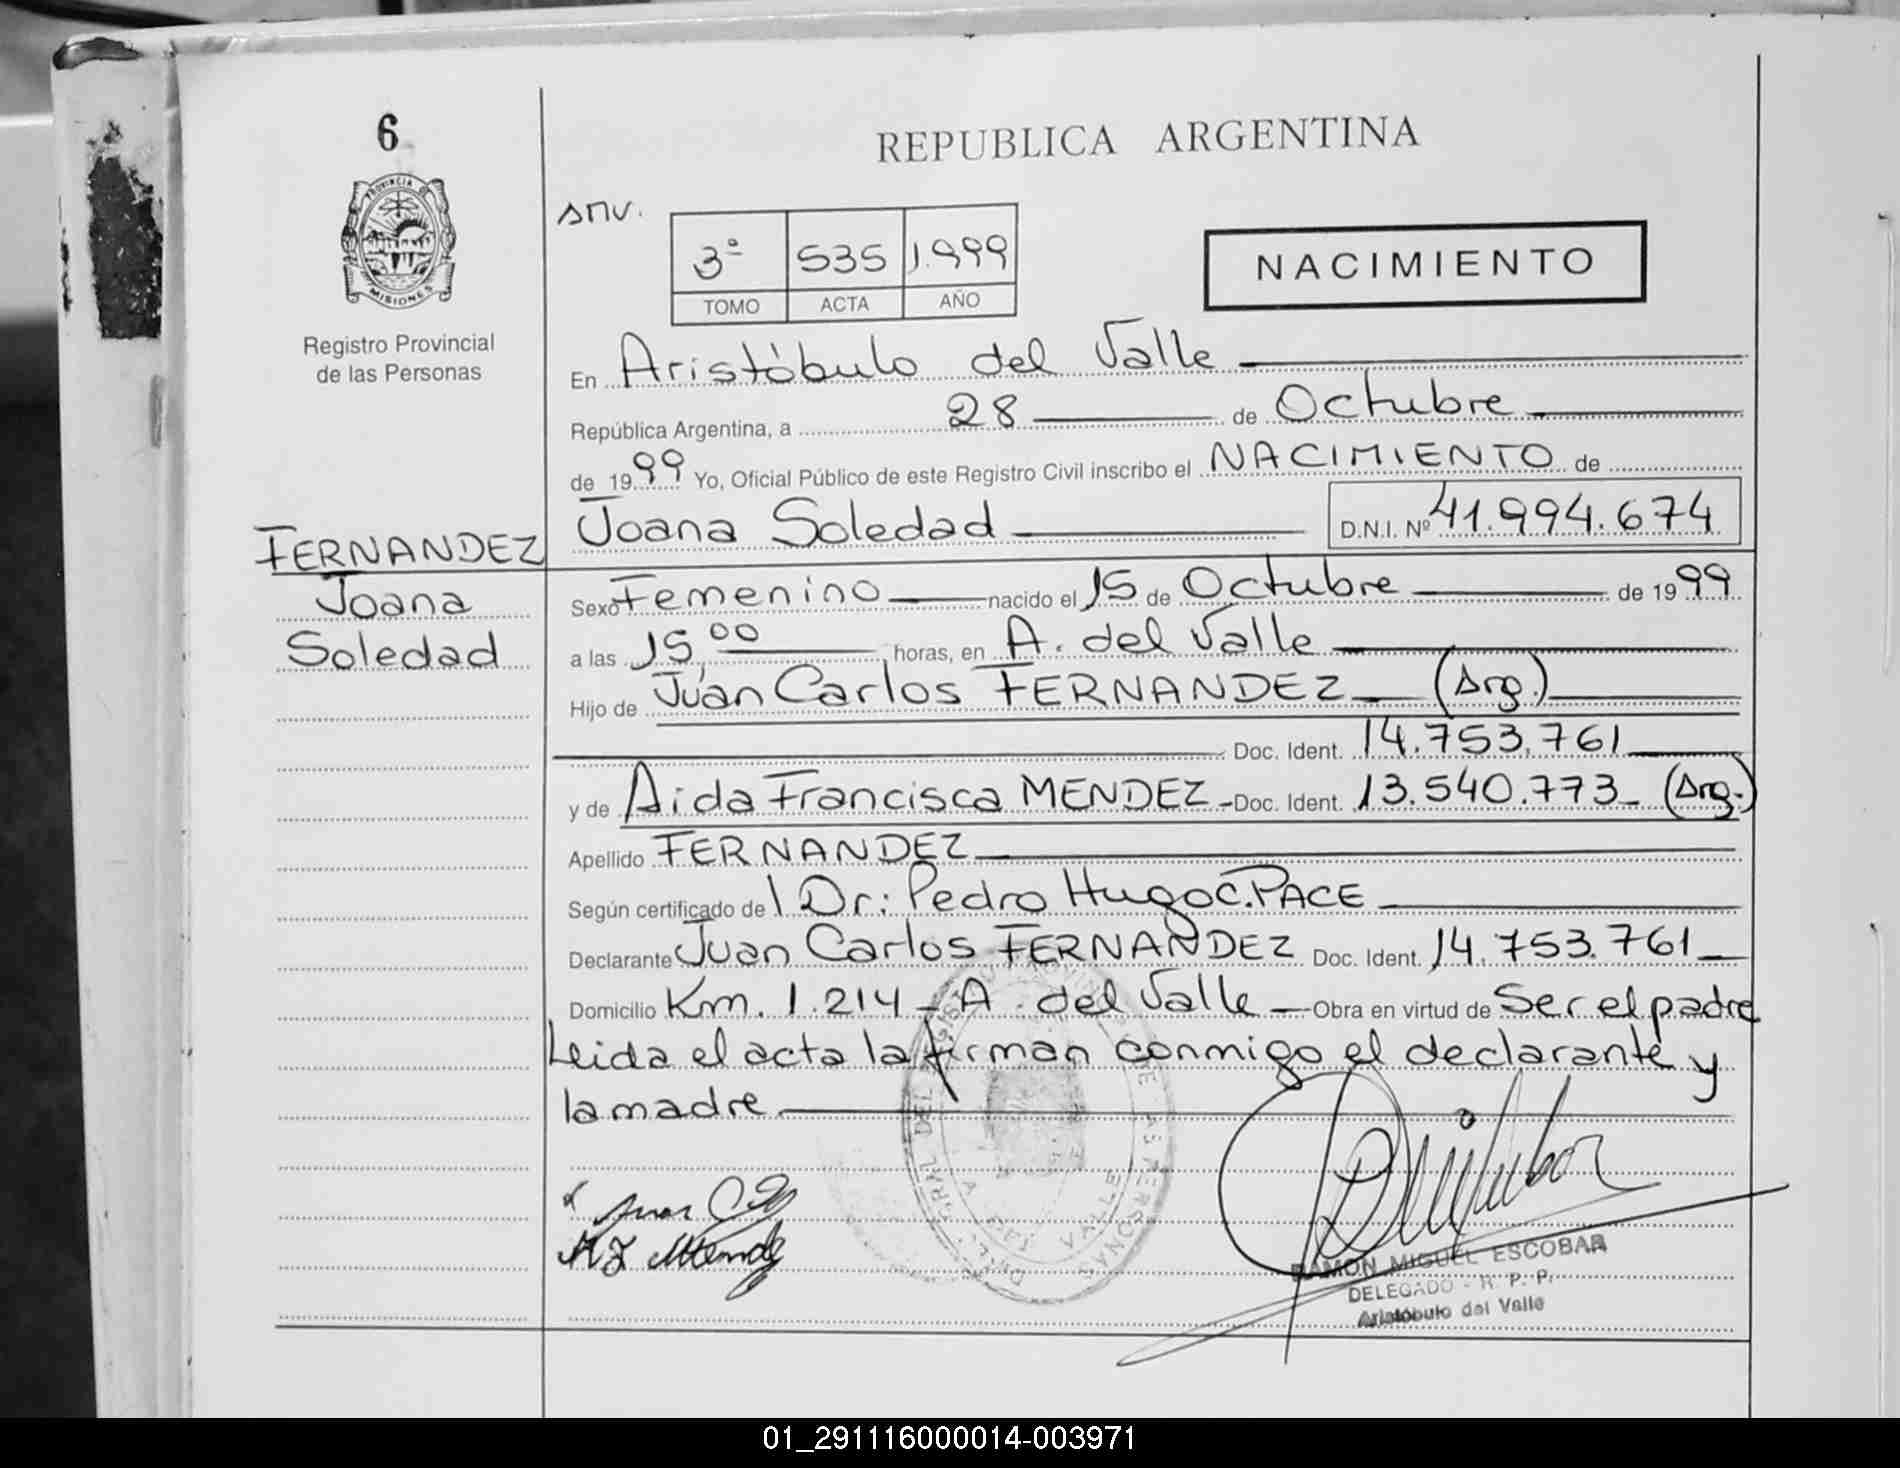 6
PROVINCIA DE
MISIONES
Registro Provincial
de las Personas
FERNANDEZ
Joana
Soledad
REPUBLICA ARGENTINA
3º 535 1.999
TOMO ACTA AÑO
NACIMIENTO
En Aristóbulo del Valle
República Argentina, a 28 de Octubre
de 1999 Yo, Oficial Público de este Registro Civil inscribo el NACIMIENTO de
Joana Soledad D.N.I. Nº 41.994.674
Sexo Femenino nacido el 15 de Octubre de 1999
a las 15,00 horas, en A. del Valle
Hijo de Juan Carlos FERNANDEZ (Arg.)
Doc. Ident. 14.753.761
y de Aida Francisca MENDEZ - Doc. Ident. 13.540.773 (Arg.)
Apellido FERNANDEZ
Según certificado del Dr: Pedro Hugo C. PACE
Declarante Juan Carlos FERNANDEZ Doc. Ident. 14.753.761
Domicilio Km. 1.214 - A. del Valle - Obra en virtud de Ser el padre
Leida el acta la firman conmigo el declarante y
la madre
RAMON MIGUEL ESCOBAR
DELEGADO - R. P. P.
Aristóbulo del Valle
01_291116000014-003971